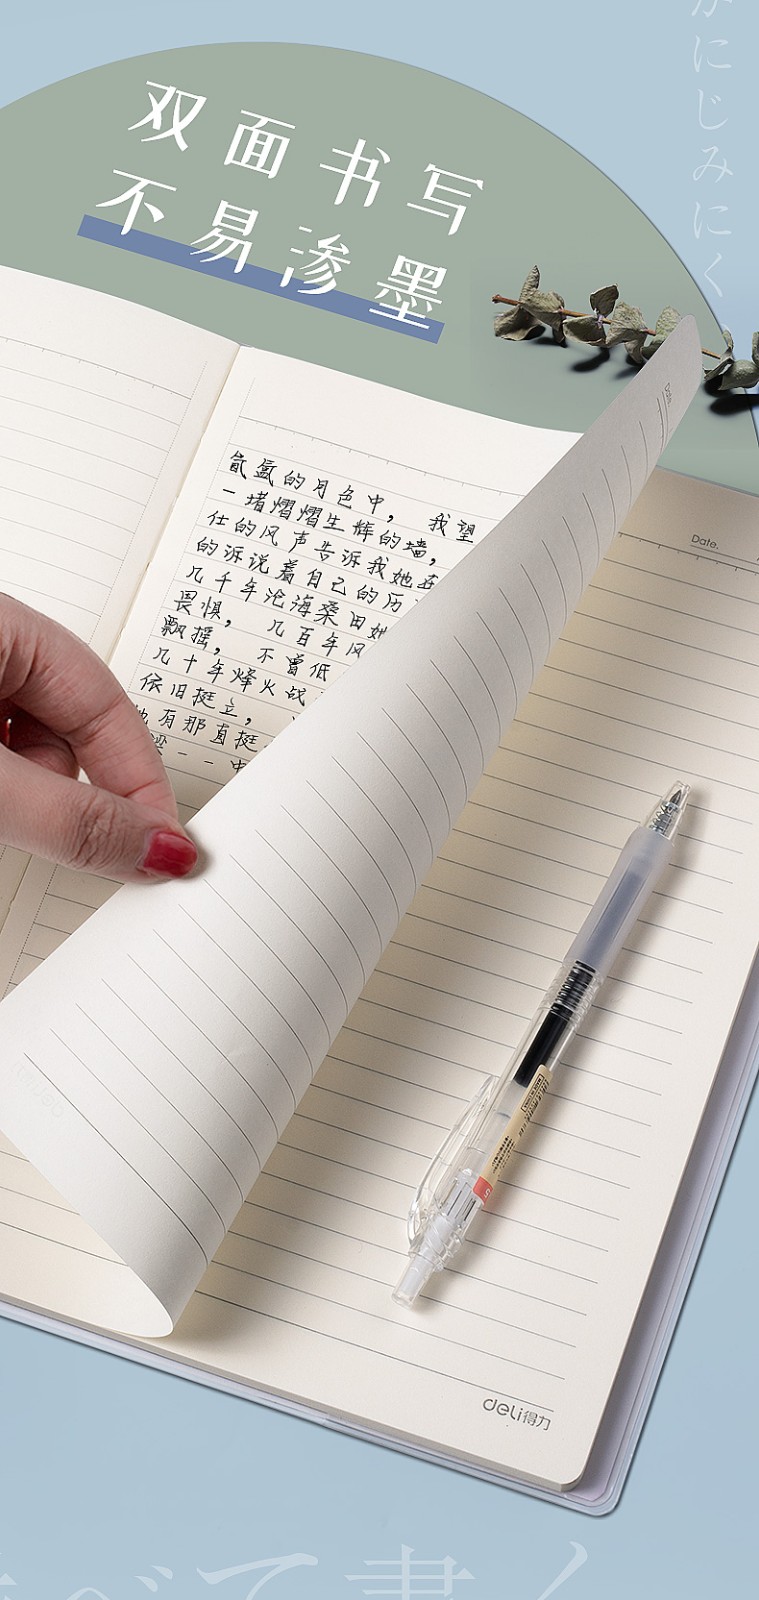 双面书写
不易渗墨
にじみにく
Date.
氤氲的月色中，我望
一堵熠熠生辉的墙，
仕的风声告诉我她在
的诉说着自己的历
几千年沧海桑田她
畏惧，几百年风
飘摇，不曾低
几十年烽火战
依旧挺立，
有那直挺
一一中
Date.
deli
deli得力
べて書く